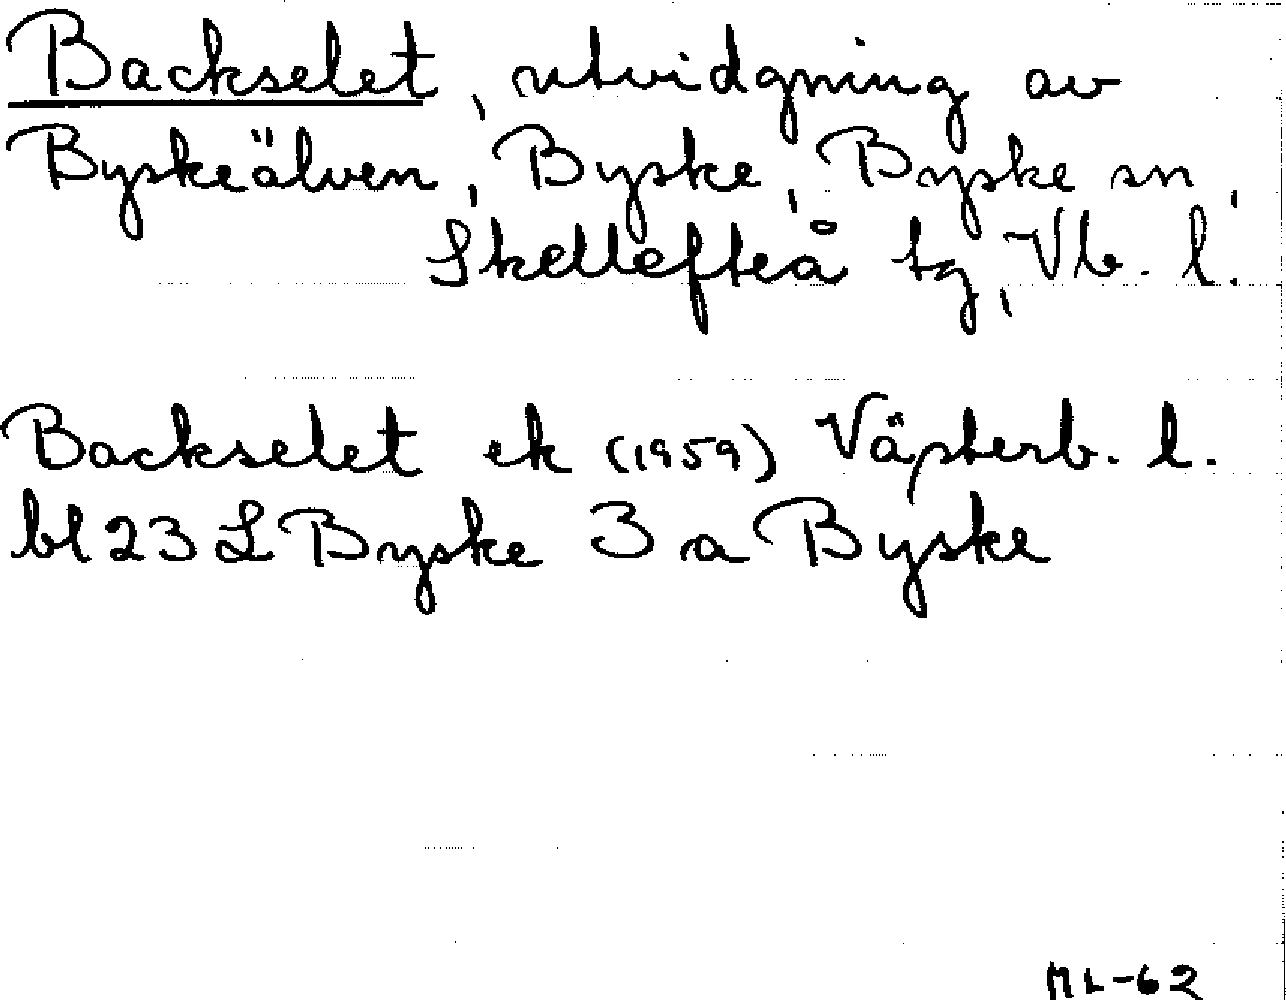 Backselet, utvidgning av
Byskeälven, Byske, Byske sn,
Skellefteå tg, Vb. l.
Backselet ek (1959) Västerb. l.
bl 23 L Byske 3 a Byske
ML-62